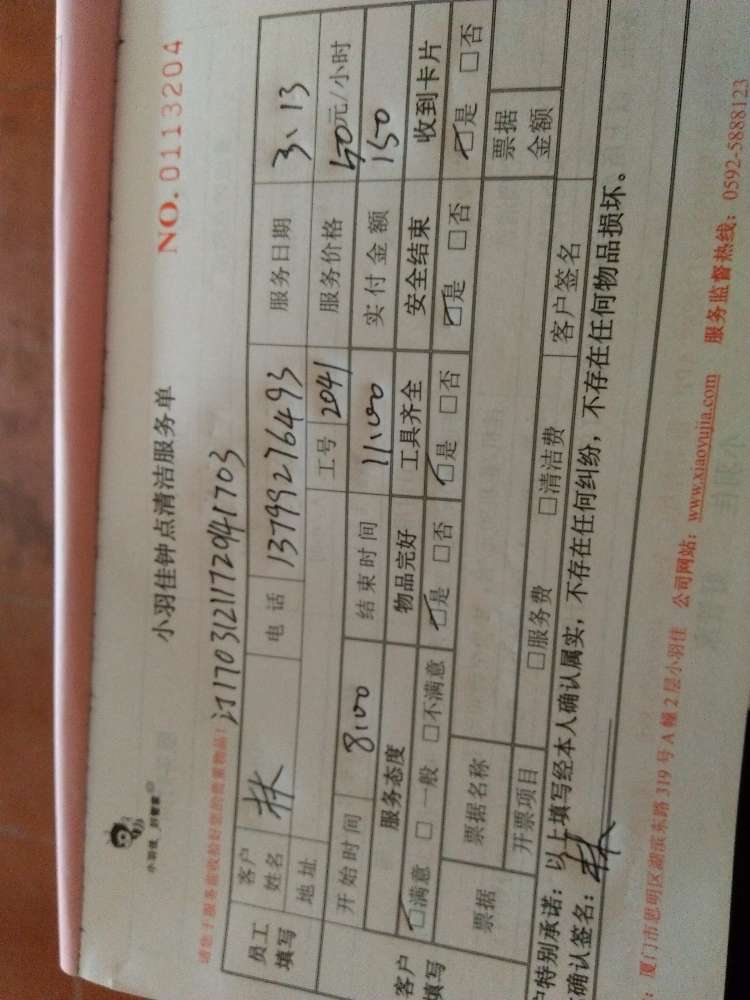 小羽佳 好管家
小羽佳钟点清洁服务单
NO.0113204
请您于服务前收拾好您的贵重物品!
订1703121172941703
员工填写 客户姓名 林 电话 13799276493 服务日期 3、13
地址 工号 2041 服务价格 50元/小时
开始时间 8:00 结束时间 11:00 实付金额 150
客户填写 服务态度 物品完好 工具齐全 安全结束 收到卡片
☑满意 □一般 □不满意 ☑是 □否 ☑是 □否 ☑是 □否 ☑是 □否
票据 票据名称 票据金额
开票项目 □服务费 □清洁费 客户签名
户特别承诺:以上填写经本人确认属实,不存在任何纠纷,不存在任何物品损坏。
确认签名:林
:厦门市思明区湖滨东路319号A幢2层小羽佳 公司网站:www.xiaoyujia.com 服务监督热线:0592-5888123